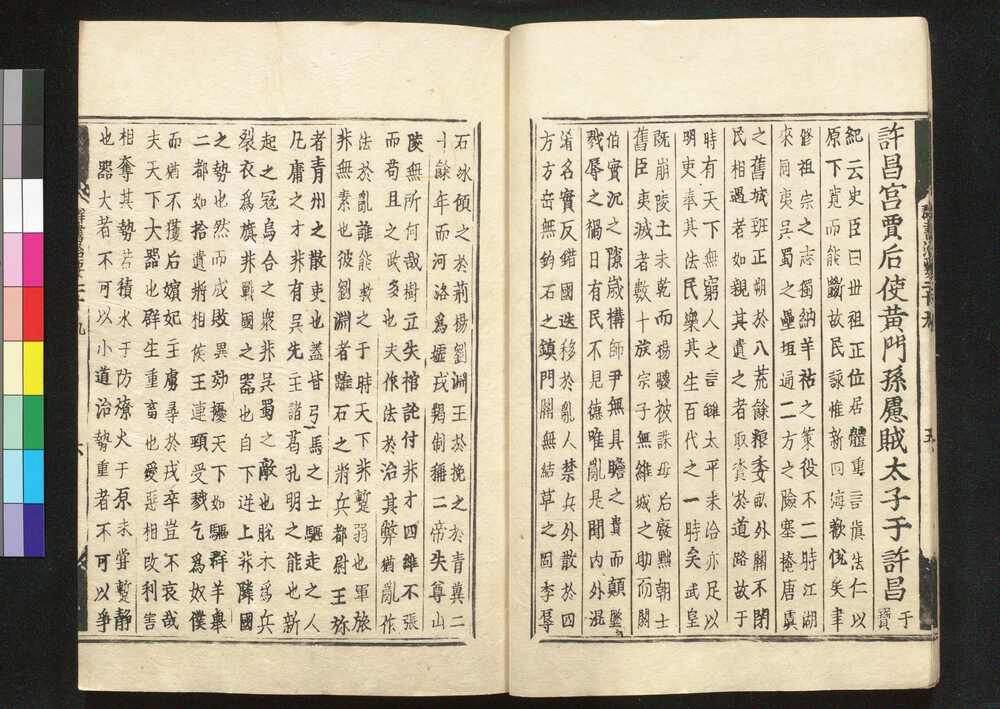 許昌宮賈后使黃門孫慮賊太子于許昌干
寶
紀云史臣曰丗祖正位居體重言慎法仁以
原下寬而能斷故民詠惟新四海歡悅矣聿
脩祖宗之志獨納羊祜之策役不二時江湖
來同夷吳蜀之壘垣通二方之險塞掩唐虞
之舊城班正朔於八荒餘粮委畝外關不閉
民相遇者如親其遺之者取資於道路故于
時有天下無窮人之言雖太平未洽亦足以
明吏奉其法民樂其生百代之一時矣武皇
既崩陵土未乾而楊駿被誅母后廢黜朝士
舊臣夷滅者數十族宗子無維城之助而閼
伯實沉之隙歲構師尹無具瞻之貴而顛墜
戮辱之禍日有民不見德唯亂是聞內外混
淆名實反錯國迭移於亂人禁兵外散於四
方方岳無鈞石之鎮門關無結草之固李辰
石冰傾之於荊楊劉淵王於挽之於青冀二
十餘年而河洛爲墟戎羯制稱二帝失尊山
陵無所何哉樹立失棺託付非才四維不張
而苟且之政多也夫作法於治其弊猶亂作
法於亂誰能救之于時天下非蹔弱也軍旅
非無素也彼劉淵者離石之將兵都尉王弥
者青州之散吏也盖皆弓馬之士驅走之人
凡庸之才非有吳先主諸葛孔明之能也新
起之冠烏合之衆非吳蜀之敵也脫木爲兵
裂衣爲旗非戰國之器也自下逆上非隣國
之勢也然而成敗異効擾天下如驅群羊舉
二都如拾遺將相侯王連頸受戮乞爲奴僕
而猶不獲后嬪妃主虜辱於戎卒豈不哀哉
夫天下大器也群生重畜也愛惡相攻利害
相奪其勢若積水于防燎火于原未甞蹔靜
也器大者不可以小道治勢重者不可以爭
群書治要二十九
六